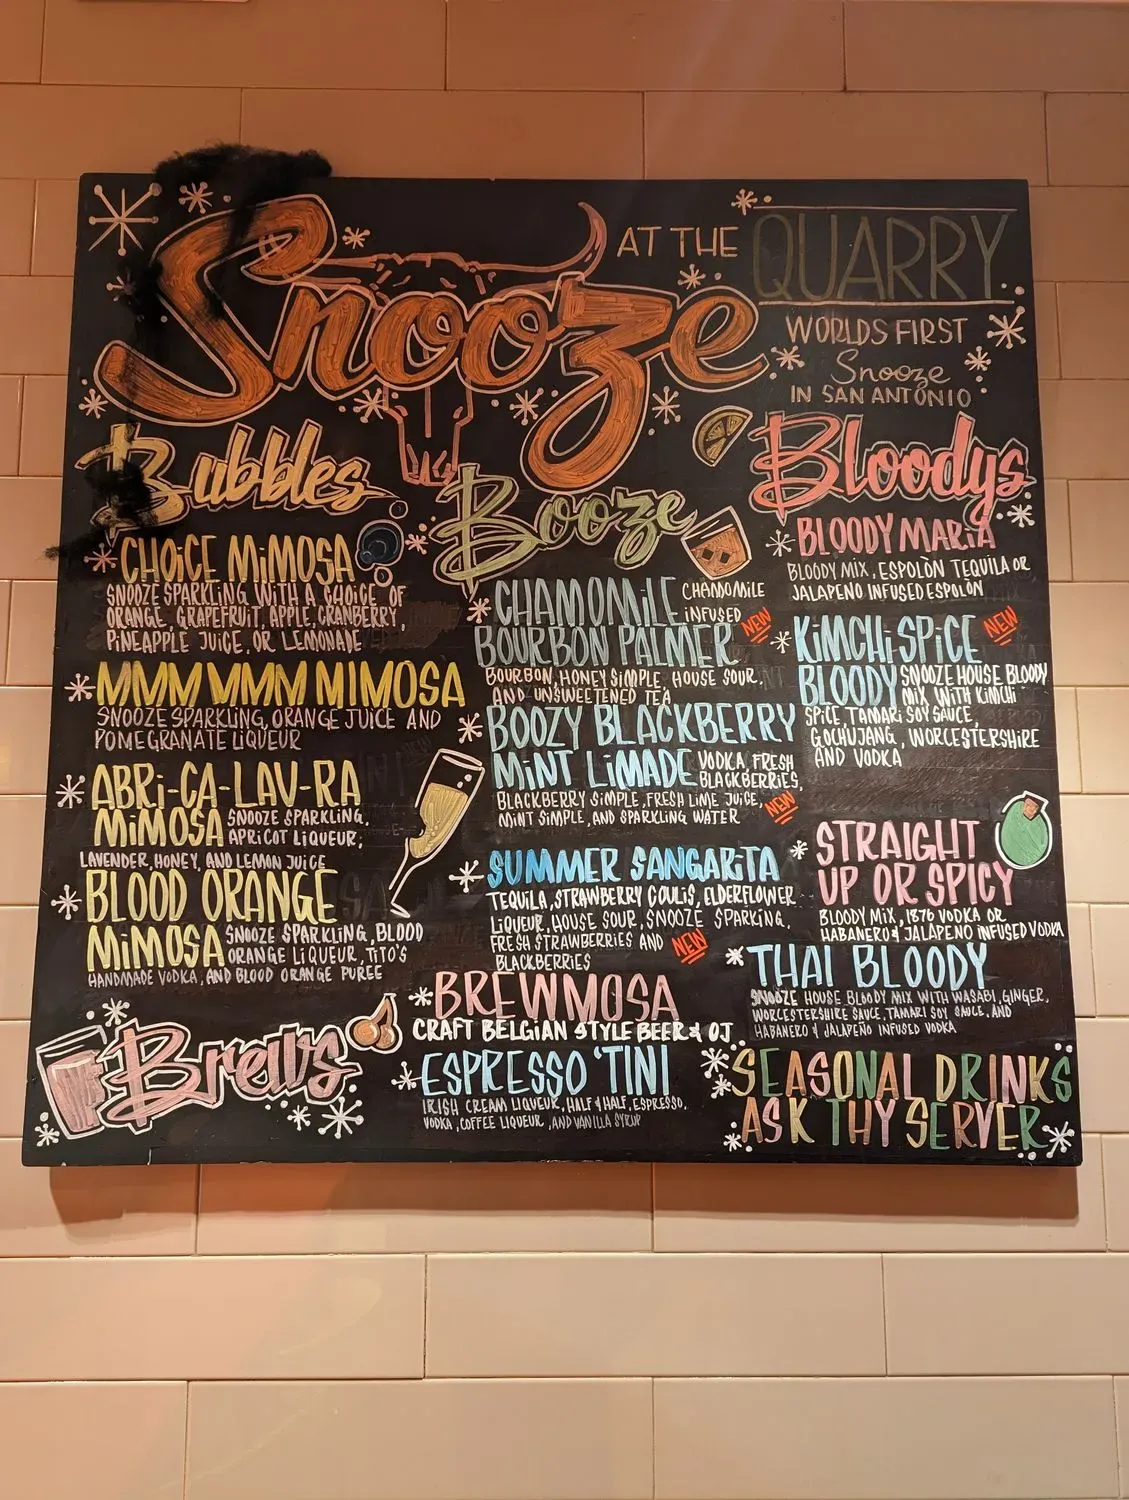 Snooze
AT THE
QUARRY
WORLDS FIRST
Snooze
IN SAN ANTONIO
Bubbles
CHOiCE MiMOSA
SNOOZE SPARKLING WITH A CHOICE OF
ORANGE, GRAPEFRUIT, APPLE, CRANBERRY,
PiNEAPPLE JUICE, OR LEMONADE
MMM MMM MIMOSA
SNOOZE SPARKLING, ORANGE JUICE AND
POMEGRANATE LiQUEUR
ABRi-CA-LAV-RA
MiMOSA SNOOZE SPARKLING,
APRICOT LIQUEUR,
LAVENDER, HONEY, AND LEMON JUICE
BLOOD ORANGE
MiMOSA SNOOZE SPARKLING, BLOOD
ORANGE LIQUEUR, TiTO'S
HANDMADE VODKA, AND BLOOD ORANGE PUREE
Brews
Booze
CHAMOMiLE CHAMOMILE
INFUSED
NEW
BOURBON PALMER
BOURBON, HONEY SIMPLE, HOUSE SOUR,
AND UNSWEETENED TEA
BOOZY BLACKBERRY
MiNT LiMADE VODKA, FRESH
BLACKBERRIES,
BLACKBERRY SiMPLE, FRESH LIME JUICE,
MINT SIMPLE, AND SPARKLING WATER
NEW
SUMMER SANGARiTA
TEQUILA, STRAWBERRY COULIS, ELDERFLOWER
LiQUEUR, HOUSE SOUR, SNOOZE SPARKING,
FRESH STRAWBERRIES AND
BLACKBERRIES
NEW
BREWMOSA
CRAFT BELGiAN STYLE BEER & OJ
ESPRESSO 'TINI
IRISH CREAM LIQUEUR, HALF & HALF, ESPRESSO,
VODKA, COFFEE LIQUEUR, AND VANILLA SYRUP
Bloodys
BLOODY MARiA
BLOODY MIX, ESPOLÒN TEQUILA OR
JALAPENO INFUSED ESPOLÒN
KiMCHi-SPiCE NEW
BLOODY SNOOZE HOUSE BLOODY
MIX WITH KIMCHI
SPiCE, TAMARi SOY SAUCE,
GOCHUJANG, WORCESTERSHIRE
AND VODKA
STRAIGHT
UP OR SPICY
BLOODY MiX, 1876 VODKA OR
HABANERO & JALAPENO INFUSED VODKA
THAI BLOODY
SNOOZE HOUSE BLOODY MIX WITH WASABI, GINGER,
WORCESTERSHIRE SAUCE, TAMARI SOY SAUCE, AND
HABANERO & JALAPEÑO INFUSED VODKA
SEASONAL DRINKS
ASK THY SERVER